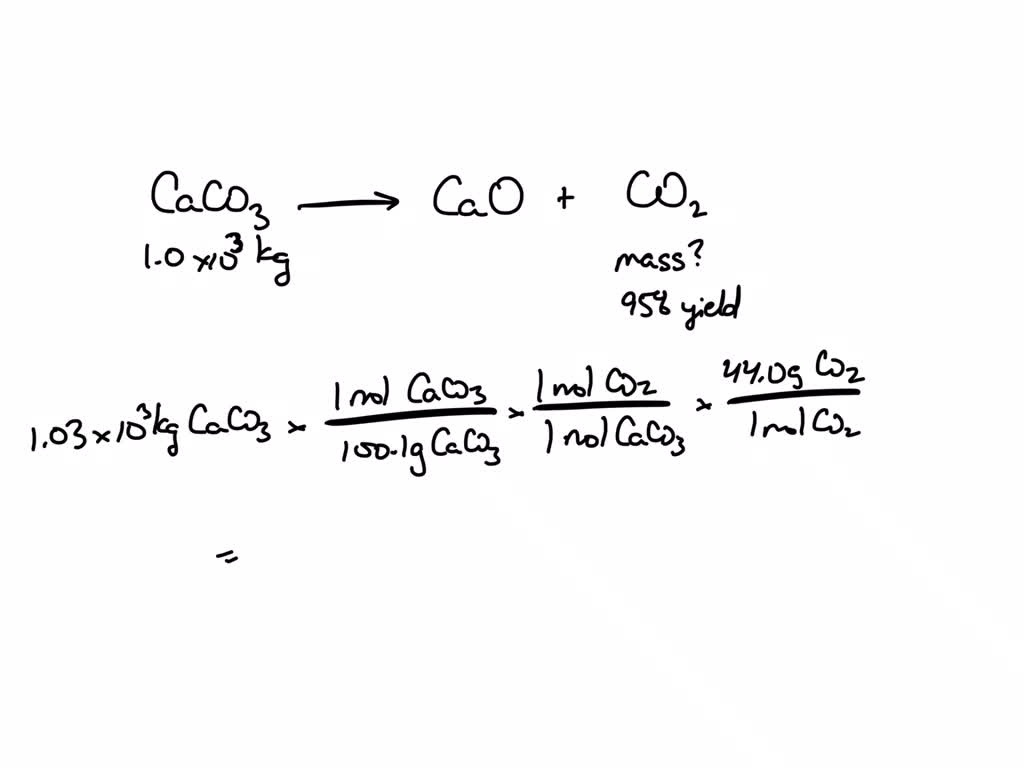 CaCO₃ → CaO + CO₂
1.0 x10³ kg mass?
95% yield
1.03 x 10³kg CaCO₃ x 1 mol CaCO₃ / 100.1g CaCO₃ x 1 mol CO₂ / 1 mol CaCO₃ x 44.0g CO₂ / 1 mol CO₂
=